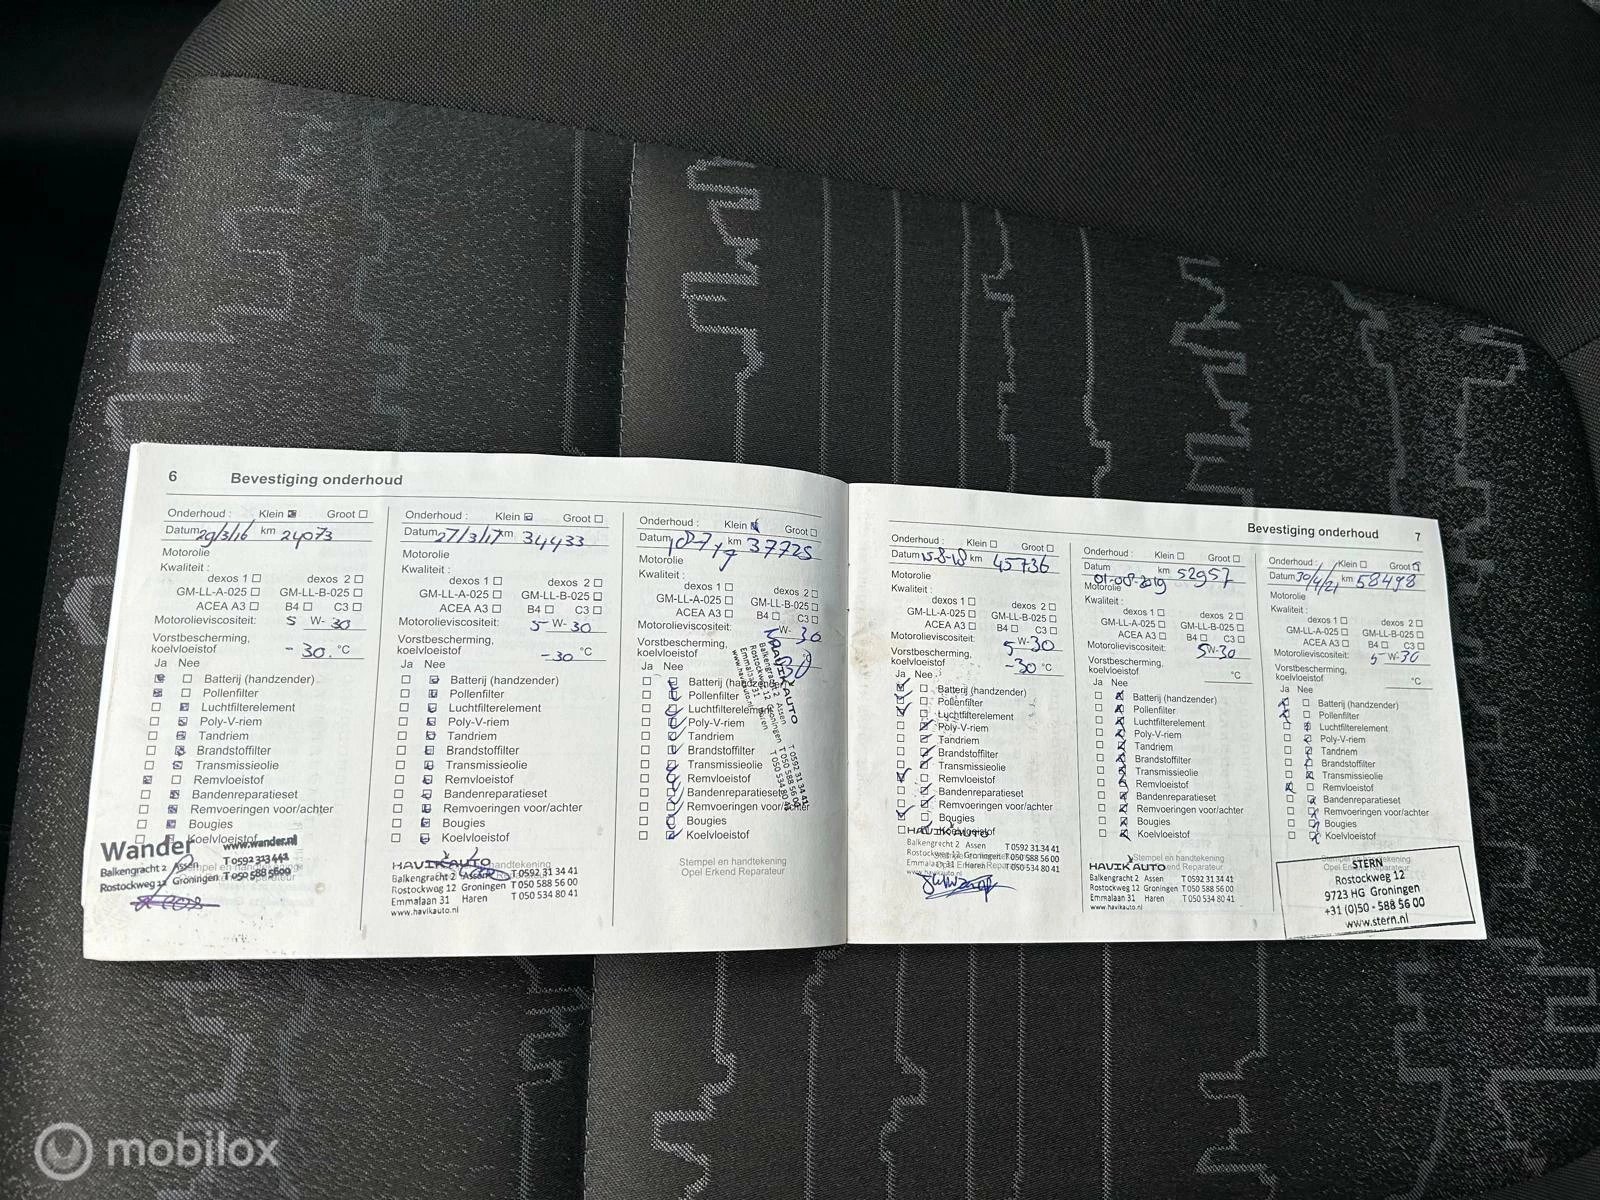 6 Bevestiging onderhoud
Onderhoud : Klein Groot
Datum 29/3/16 km 24073
Motorolie
Kwaliteit :
dexos 1 dexos 2
GM-LL-A-025 GM-LL-B-025
ACEA A3 B4 C3
Motorolieviscositeit: 5 W- 30
Vorstbescherming,
koelvloeistof - 30. °C
Ja Nee
Batterij (handzender)
Pollenfilter
Luchtfilterelement
Poly-V-riem
Tandriem
Brandstoffilter
Transmissieolie
Remvloeistof
Bandenreparatieset
Remvoeringen voor/achter
Bougies
Koelvloeistof
Wander www.wander.nl
Balkengracht 2 Assen T 0592 313 441
Rostockweg 12 Groningen T 050 588 5600
Onderhoud : Klein Groot
Datum 27/3/17 km 34433
Motorolie
Kwaliteit :
dexos 1 dexos 2
GM-LL-A-025 GM-LL-B-025
ACEA A3 B4 C3
Motorolieviscositeit: 5 W- 30
Vorstbescherming,
koelvloeistof -30 °C
Ja Nee
Batterij (handzender)
Pollenfilter
Luchtfilterelement
Poly-V-riem
Tandriem
Brandstoffilter
Transmissieolie
Remvloeistof
Bandenreparatieset
Remvoeringen voor/achter
Bougies
Koelvloeistof
Stempel en handtekening
HAVIK AUTO
Balkengracht 2 Assen T 0592 31 34 41
Rostockweg 12 Groningen T 050 588 56 00
Emmalaan 31 Haren T 050 534 80 41
www.havikauto.nl
Onderhoud : Klein Groot
Datum km 37725
Motorolie
Kwaliteit :
dexos 1 dexos 2
GM-LL-A-025 GM-LL-B-025
ACEA A3 B4 C3
Motorolieviscositeit: 5 W- 30
Vorstbescherming,
koelvloeistof
Ja Nee
Batterij (handzender)
Pollenfilter
Luchtfilterelement
Poly-V-riem
Tandriem
Brandstoffilter
Transmissieolie
Remvloeistof
Bandenreparatieset
Remvoeringen voor/achter
Bougies
Koelvloeistof
HAVIK AUTO
Balkengracht 2 Assen T 0592 31 34 41
Rostockweg 12 Groningen T 050 588 56 00
Emmalaan 31 Haren T 050 534 80 41
www.havikauto.nl
Stempel en handtekening
Opel Erkend Reparateur
Bevestiging onderhoud 7
Onderhoud : Klein Groot
Datum 15-8-18 km 45736
Motorolie
Kwaliteit :
dexos 1 dexos 2
GM-LL-A-025 GM-LL-B-025
ACEA A3 B4 C3
Motorolieviscositeit: 5-W-30
Vorstbescherming,
koelvloeistof -30 °C
Ja Nee
Batterij (handzender)
Pollenfilter
Luchtfilterelement
Poly-V-riem
Tandriem
Brandstoffilter
Transmissieolie
Remvloeistof
Bandenreparatieset
Remvoeringen voor/achter
Bougies
Koelvloeistof
HAVIK AUTO
Balkengracht 2 Assen T 0592 31 34 41
Rostockweg 12 Groningen T 050 588 56 00
Emmalaan 31 Haren T 050 534 80 41
www.havikauto.nl
Onderhoud : Klein Groot
Datum 01-08-2019 km 52957
Motorolie
Kwaliteit :
dexos 1 dexos 2
GM-LL-A-025 GM-LL-B-025
ACEA A3 B4 C3
Motorolieviscositeit: 5W-30
Vorstbescherming,
koelvloeistof °C
Ja Nee
Batterij (handzender)
Pollenfilter
Luchtfilterelement
Poly-V-riem
Tandriem
Brandstoffilter
Transmissieolie
Remvloeistof
Bandenreparatieset
Remvoeringen voor/achter
Bougies
Koelvloeistof
Stempel en handtekening
HAVIK AUTO
Balkengracht 2 Assen T 0592 31 34 41
Rostockweg 12 Groningen T 050 588 56 00
Emmalaan 31 Haren T 050 534 80 41
www.havikauto.nl
Onderhoud : Klein Groot
Datum 30/4/21 km 58498
Motorolie
Kwaliteit :
dexos 1 dexos 2
GM-LL-A-025 GM-LL-B-025
ACEA A3 B4 C3
Motorolieviscositeit: 5-W-30
Vorstbescherming,
koelvloeistof °C
Ja Nee
Batterij (handzender)
Pollenfilter
Luchtfilterelement
Poly-V-riem
Tandriem
Brandstoffilter
Transmissieolie
Remvloeistof
Bandenreparatieset
Remvoeringen voor/achter
Bougies
Koelvloeistof
STERN
Rostockweg 12
9723 HG Groningen
+31 (0)50 - 588 56 00
www.stern.nl
mobilox